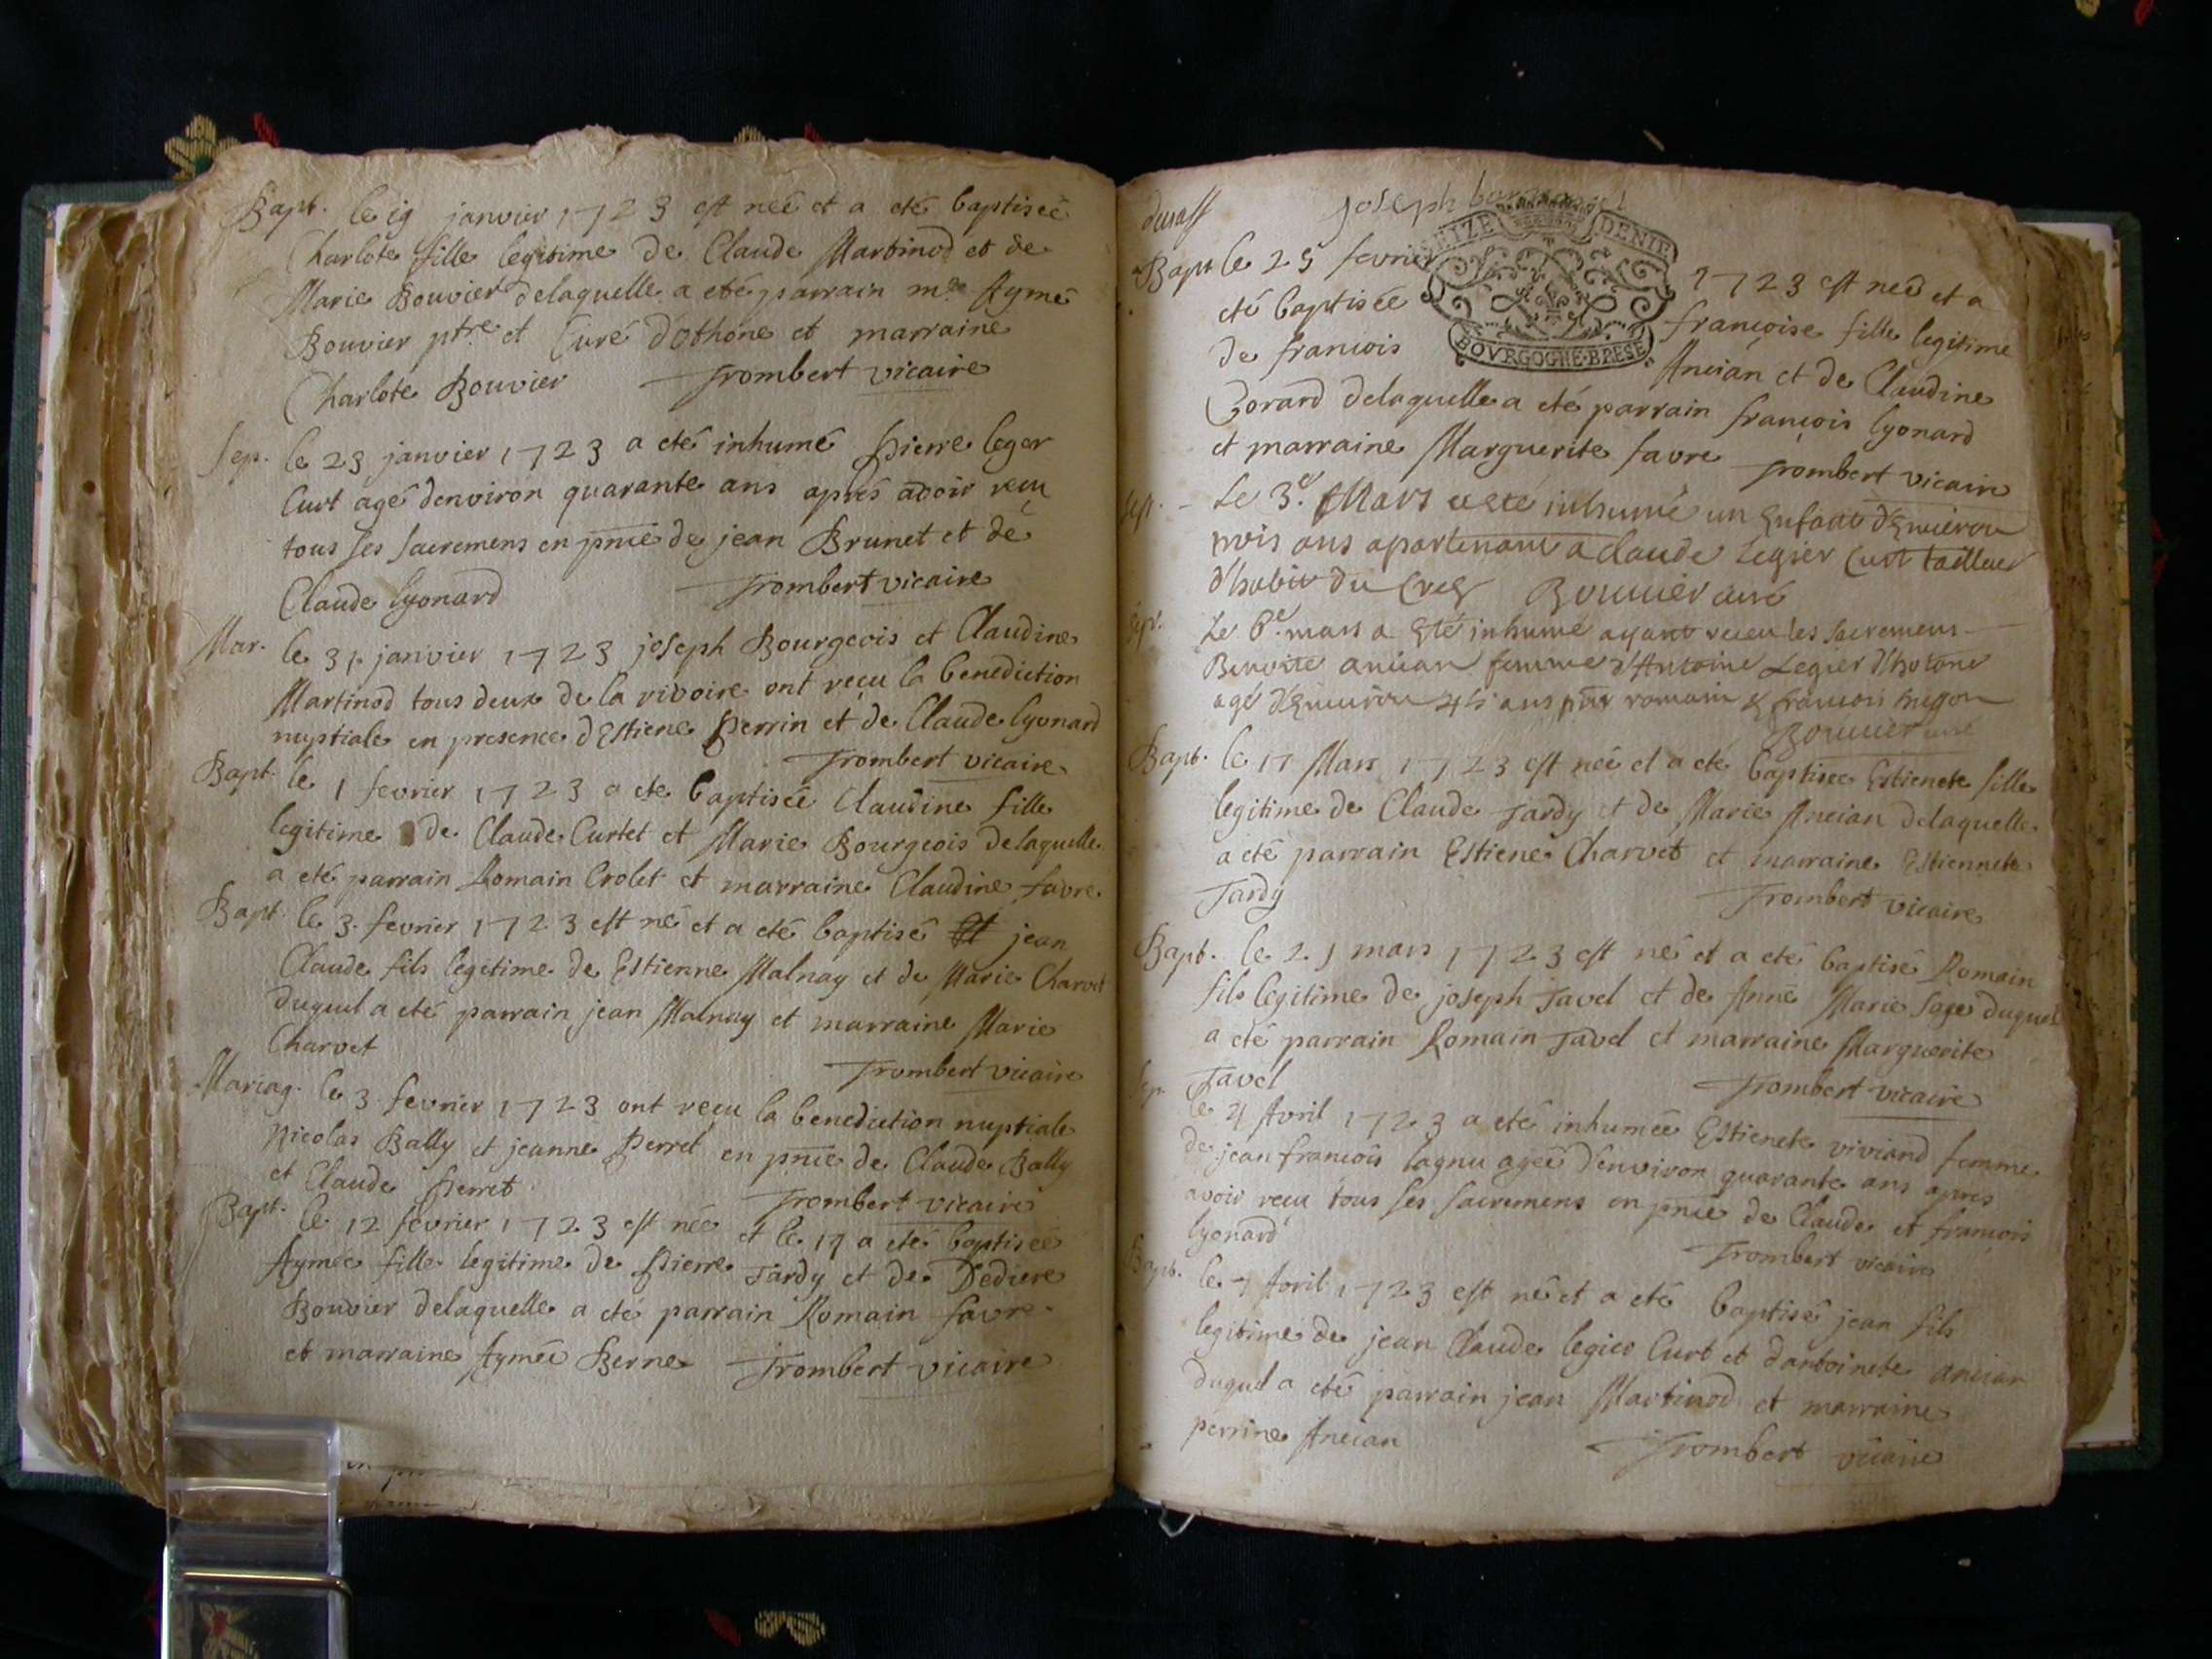 Bapt. le 19 janvier 1723 est neé et a eté baptiseé
Charlote fille legitime de Claude Martinod et de
Marie Bouvier delaquelle a eté parrain mre Aymé
Bouvier ptre et Curé d'Othone et marraine
Charlote Bouvier Trombert vicaire
Sep. le 23 janvier 1723 a eté inhumé Pierre leger
Curt agé denviron quarante ans aprés avoir reçu
tous ses sacremens en pnce de jean Brunet et de
Claude lyonard Trombert vicaire
Mar. le 31 janvier 1723 joseph Bourgeois et Claudine
Martinod tous deux de la rivoire ont reçu la benediction
nuptiale en presence d'Estiene Perrin et de Claude lyonard
Trombert vicaire
Bapt. le 1 fevrier 1723 a eté baptiseé Claudine fille
legitime de Claude Curtet et Marie Bourgeois delaquelle
a eté parrain Romain Crolet et marraine Claudine favre
Bapt. le 3 fevrier 1723 est né et a eté baptisé jean
Claude fils legitime de Estienne Malnay et de Marie Charvet
duquel a eté parrain jean Malnay et marraine Marie
Charvet Trombert vicaire
Mariag. le 3 fevrier 1723 ont reçu la benediction nuptiale
Nicolas Bally et jeanne Perret en pnce de Claude Bally
et Claude Perret Trombert vicaire
Bapt. le 12 fevrier 1723 est née et le 17 a eté baptiseé
Aymée fille legitime de Pierre Tardy et de Dediere
Bouvier delaquelle a eté parrain Romain favre
et marraine Aymeé Berne Trombert vicaire
joseph
SEIZE DENIE
BOVRGOGNE·BRESE
Bapt le 25 fevrier 1723 est neé et a
eté baptisée françoise fille legitime
de francois Ancian et de Claudine
Gorard delaquelle a eté parrain françois lyonard
et marraine Marguerite favre Trombert vicaire
Sep. Le 3e. Mars a esté inhumé un Enfant d'Enuiron
trois ans apartenant a Claude Legier Curt tailleur
d'habit du Bouuier curé
Sep. Le 6e. mars a Eté inhumé ayant receu les sacremens
Benoite ancian femme d'Antoine Legier d'hotone
agé d'Enuiron 45 ans romain & francois
Bouuier curé
Bapt. le 17 Mars 1723 est neé et a eté baptisee Estienete fille
legitime de Claude Tardy et de Marie Ancian delaquelle
a eté parrain Estiene Charvet et marraine Estiennete
Tardy Trombert vicaire
Bapt. le 21 mars 1723 est né et a eté baptisé Romain
fils legitime de joseph Tavel et de Anne Marie Sage duquel
a eté parrain Romain Tavel et marraine Marguerite
Tavel Trombert vicaire
Sep. le 4 Avril 1723 a eté inhumeé Estienete viviand femme
de jean francois lagnu ageé d'environ quarante ans apres
avoir reçu tous ses sacremens en pnce de Claude et francois
lyonard Trombert vicaire
Bapt. le 7 Avril 1723 est né et a eté baptisé jean fils
legitime de jean Claude legier Curt et dantoinete ancian
duquel a eté parrain jean Martinod et marraine
perrine Ancian Trombert vicaire